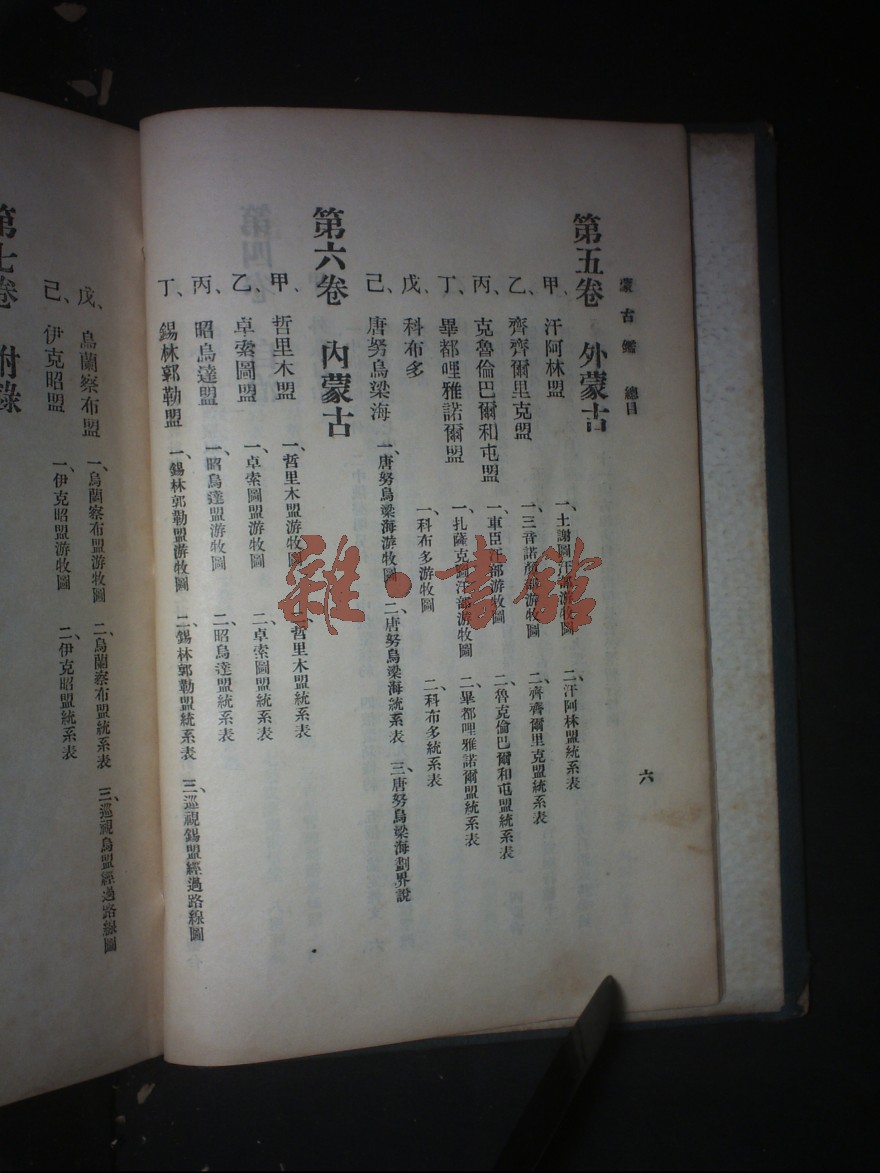 蒙古鑑 總目
六
第五卷 外蒙古
甲、汗阿林盟 一、土謝圖汗部游牧圖 二、汗阿林盟統系表
乙、齊齊爾里克盟 一、三音諾顏部游牧圖 二、齊齊爾里克盟統系表
丙、克魯倫巴爾和屯盟 一、車臣汗部游牧圖 二、魯克倫巴爾和屯盟統系表
丁、畢都哩雅諾爾盟 一、扎薩克圖汗部游牧圖 二、畢都哩雅諾爾盟統系表
戊、科布多 一、科布多游牧圖 二、科布多統系表
己、唐努烏梁海 一、唐努烏梁海游牧圖 二、唐努烏梁海統系表 三、唐努烏梁海劃界說
第六卷 內蒙古
甲、哲里木盟 一、哲里木盟游牧圖 二、哲里木盟統系表
乙、卓索圖盟 一、卓索圖盟游牧圖 二、卓索圖盟統系表
丙、昭烏達盟 一、昭烏達盟游牧圖 二、昭烏達盟統系表
丁、錫林郭勒盟 一、錫林郭勒盟游牧圖 二、錫林郭勒盟統系表 三、巡視錫盟經過路線圖
戊、烏蘭察布盟 一、烏蘭察布盟游牧圖 二、烏蘭察布盟統系表 三、巡視烏盟經過路線圖
己、伊克昭盟 一、伊克昭盟游牧圖 二、伊克昭盟統系表
第七卷 附錄
雜·書館